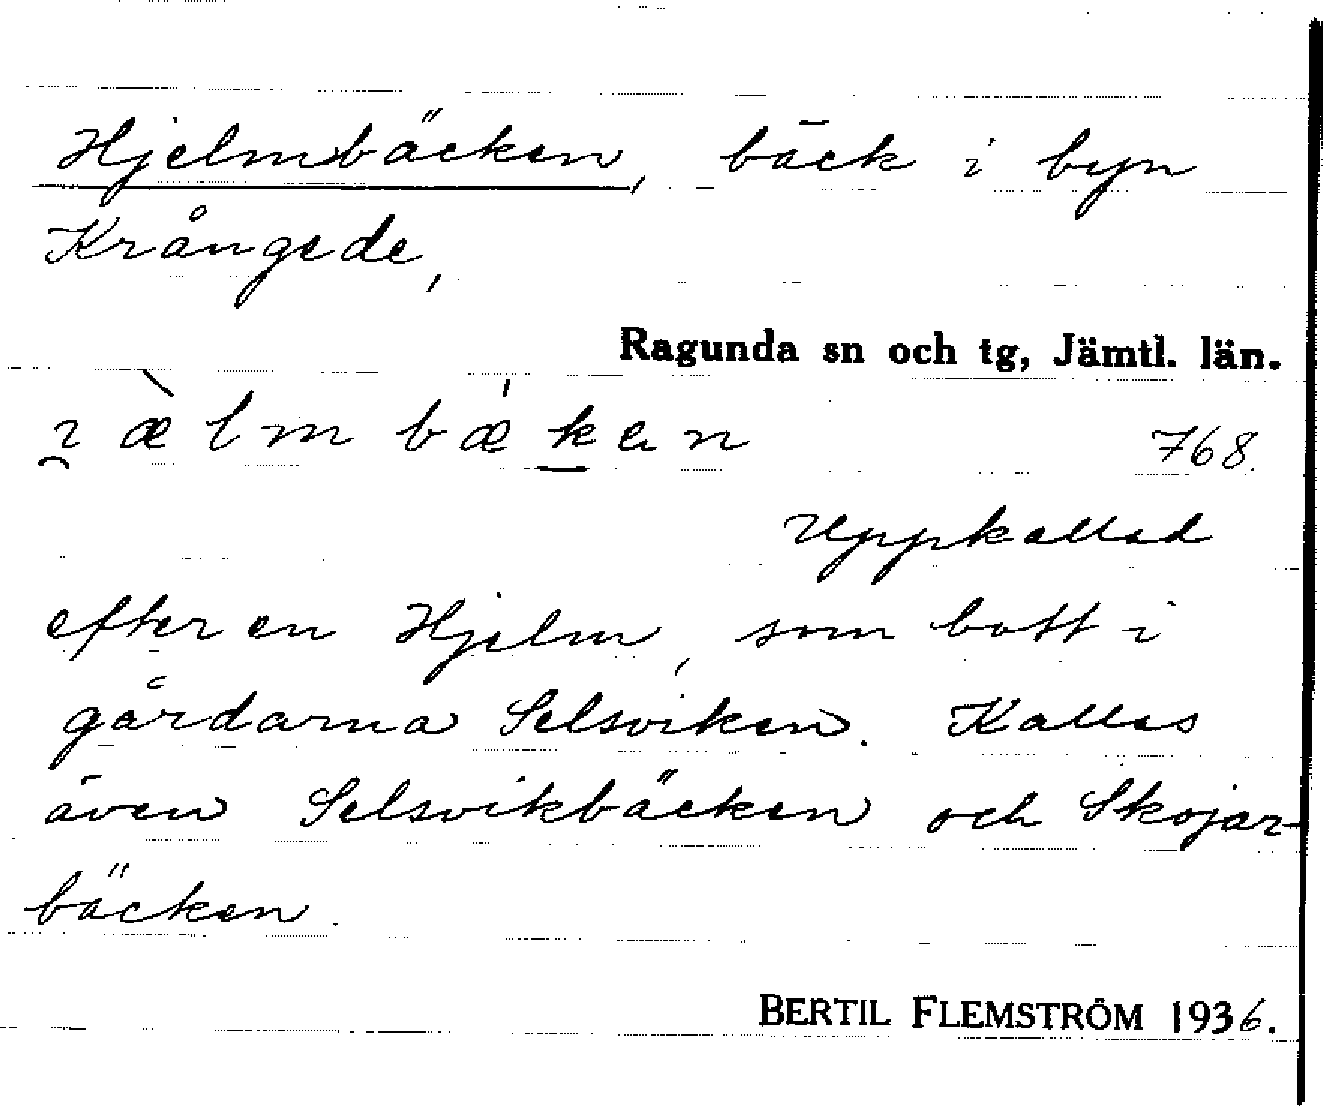 Hjelmbäcken, bäck i byn
Krångede,
Ragunda sn och tg, Jämtl. län.
768.
Uppkallad
efter en Hjelm, som bott i
gårdarna Selsviken. Kallas
även Selsvikbäcken och Skojar-
bäcken.
BERTIL FLEMSTRÖM 1936.